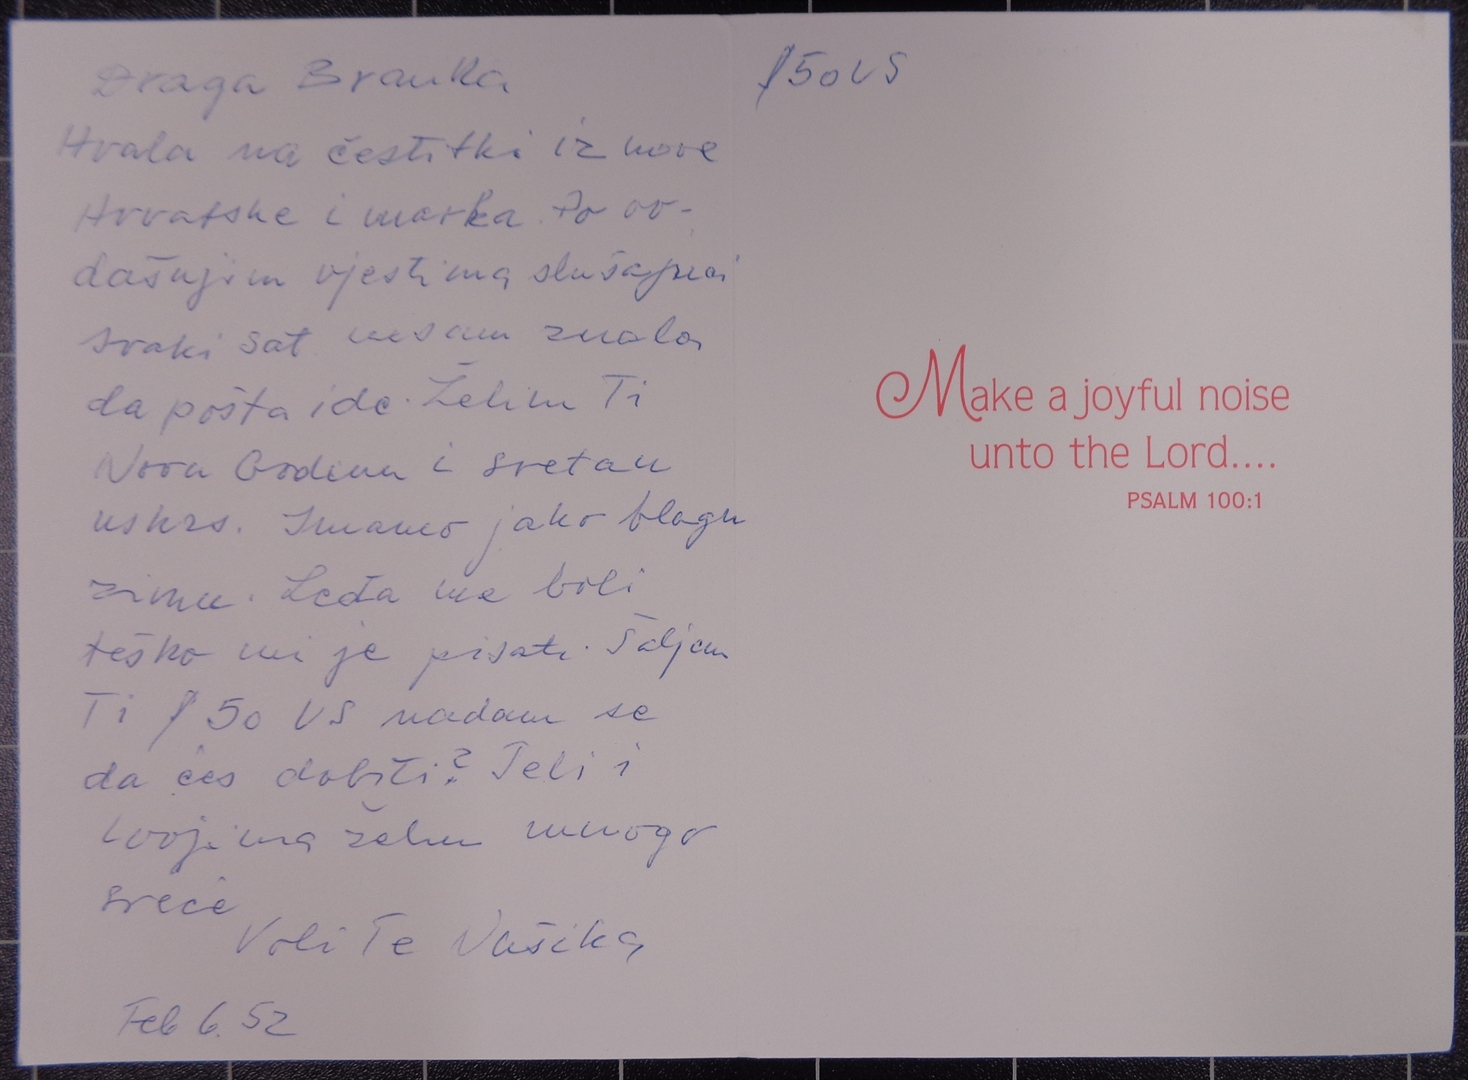 Draga Branka
Hvala na čestitki iz nove
Hrvatske i marka. Po ov-
dašnjim vjestima slušajuci
svaki sat nesam znala
da pošta ide. Želim Ti
Novu Godinu i sretan
uskrs. Imamo jako blagu
zimu. Leđa me boli
teško mi je pisati. Šaljem
Ti $50 US nadam se
da ćes dobiti? Tebi i
tvojima želim mnogo
sreće
Voli Te Našika
Feb 6. 52
$50 US
Make a joyful noise
unto the Lord....
PSALM 100:1